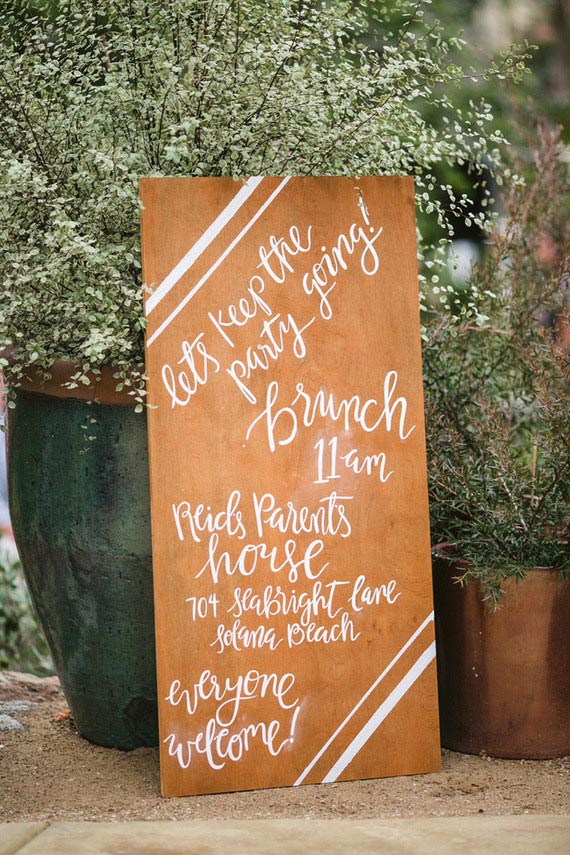 lets keep the
party going!
brunch
11am
Reids Parents
house
704 Seabright Lane
Solana Beach
everyone
welcome!